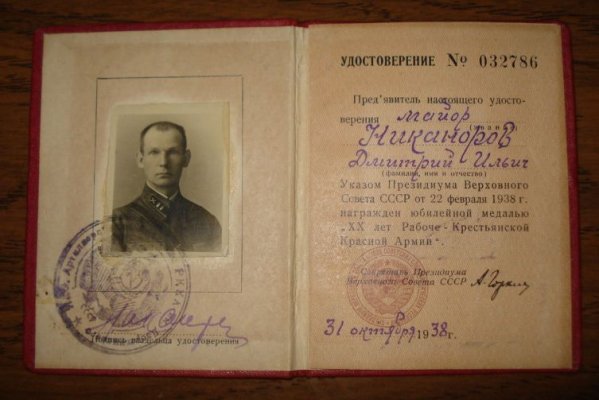 РККА
Подпись владельца удостоверения
УДОСТОВЕРЕНИЕ № 032786
Пред'явитель настоящего удосто-
верения майор
(звание)
Никаноров
Дмитрий Ильич
(фамилия, имя и отчество)
Указом Президиума Верховного
Совета СССР от 22 февраля 1938 г.
награжден юбилейной медалью
"XX лет Рабоче-Крестьянской
Красной Армии".
Секретарь Президиума
Верховного Совета СССР А. Горкин
31 октября 1938 г.